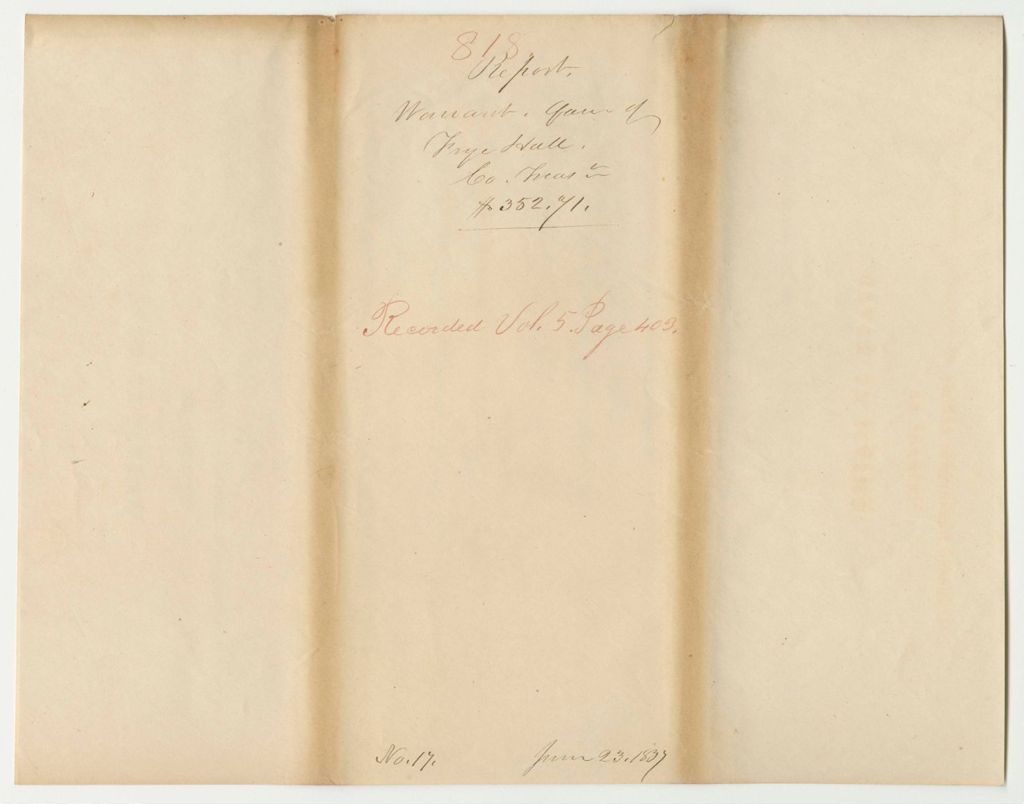 818
Report.
Warrant. favr of
Frye Hall.
Co. Treasr
$352.71.
Recorded Vol. 5. Page 403.
No. 17. June 23. 1837